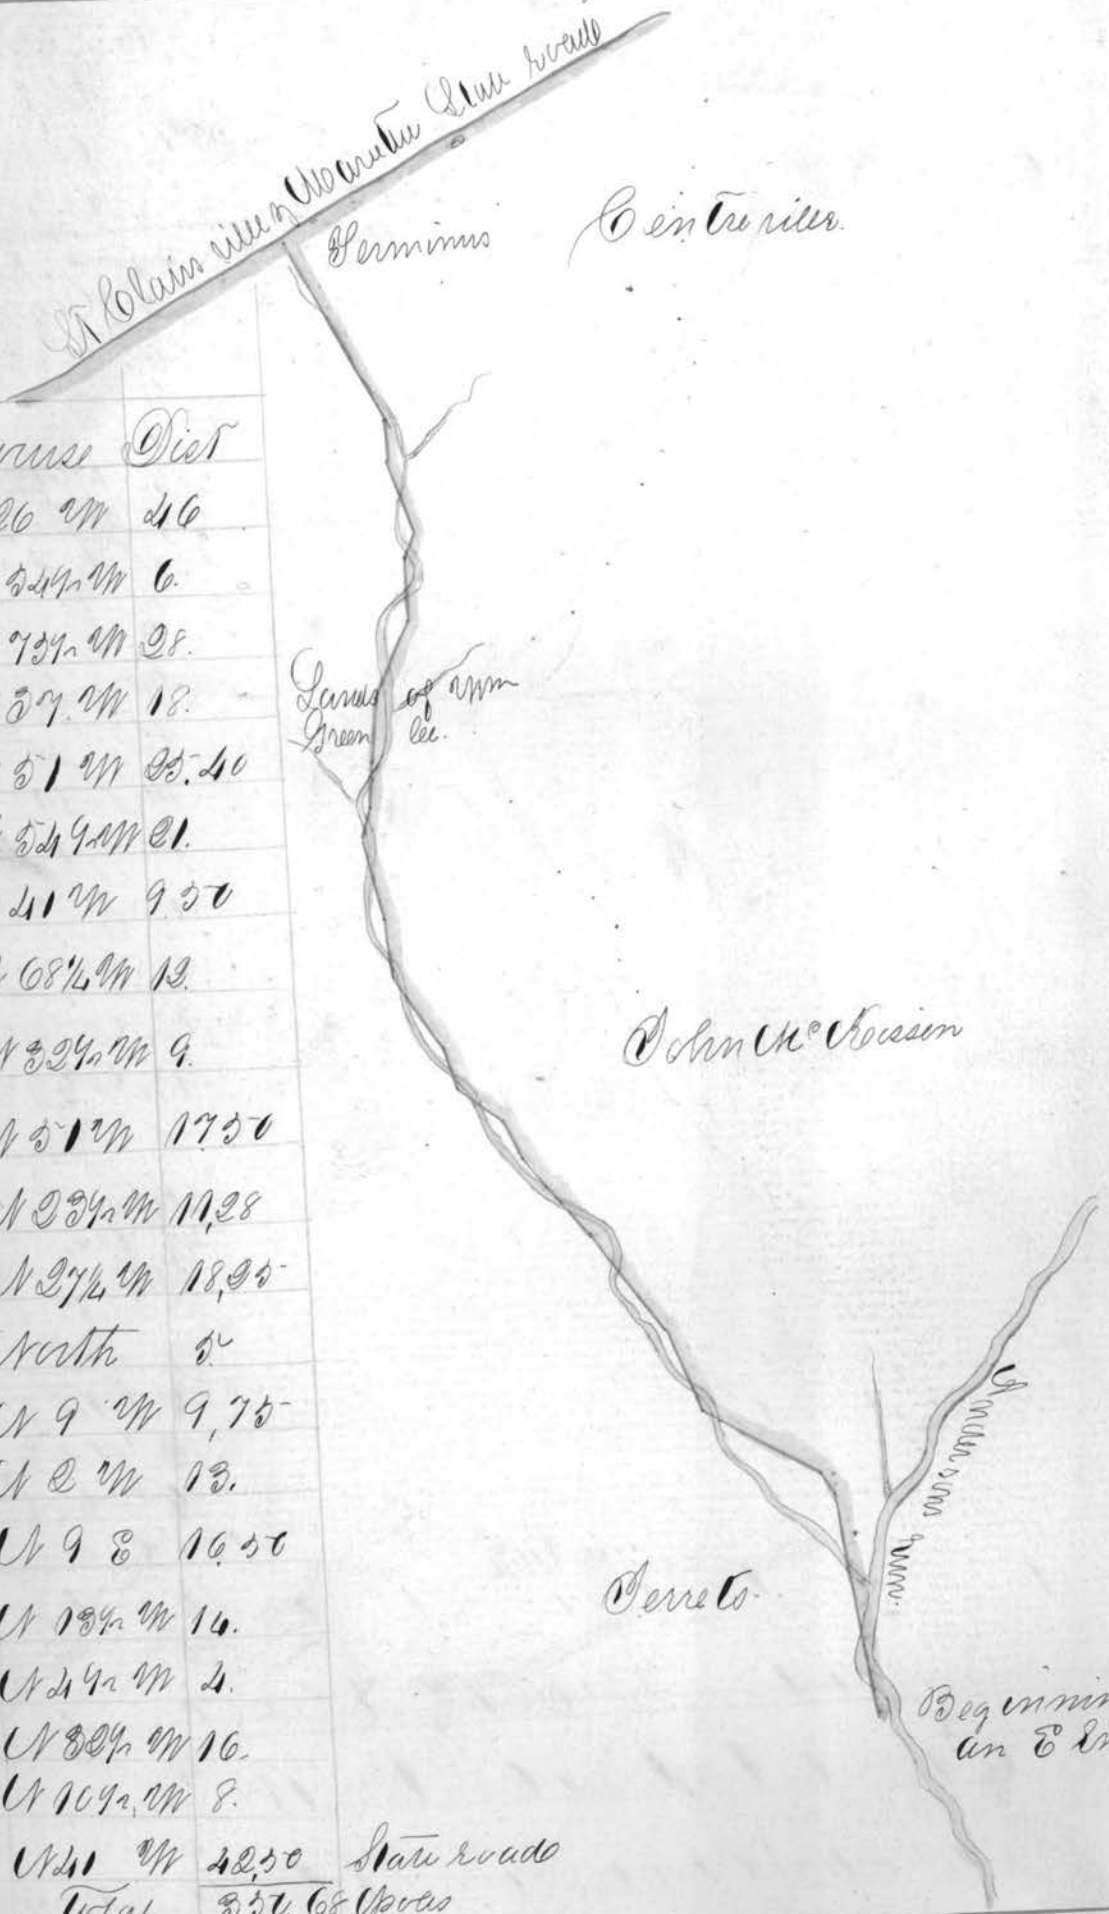 St Clairsville & Marietta State road
Terminus
Centreville.
Course Dist
26 W 46
54½ W 6.
73½ W 28.
37. W 18.
51 W 25.40
54½ W 21.
41 W 9 50
68¼ W 12.
N 32½ W 9.
N 51 W 17 50
N 23½ W 11,28
N 27¼ W 18,25
North 5
N 9 W 9,75
N 2 W 13.
N 9 E 16,50
N 13½ W 14.
N 4½ W 4.
N 32½ W 16.
N 10½ W 8.
N 41 W 42,50 State road
Total 350 68 Poles
Lands of Wm
Green lee.
John Mc Kissen
Andersons run.
Jerrets.
Beginnin
an E